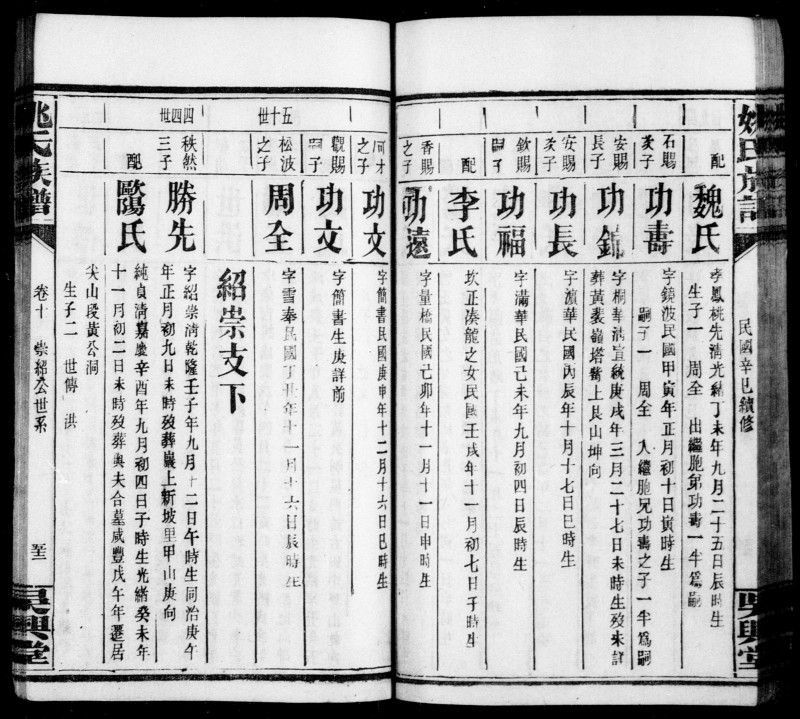 姚氏族譜
民國辛巳續修
吳興堂
配
魏氏
李鳳桃先清光緒丁未年九月二十五日辰時生
生子一 周全 出繼胞弟功壽一半為嗣
石賜
次子
功壽
字鏡波民國甲寅年正月初十日寅時生
嗣子一 周全 入繼胞兄功壽之子一半為嗣
安賜
長子
功錦
字桐華清宣統庚戌年三月二十七日未時生歿未詳
葬黃裴嶺塔嘴上艮山坤向
安賜
次子
功長
字濱華民國丙辰年十月十七日巳時生
欽賜
嗣子
功福
字滿華民國己未年九月初四日辰時生
配
李氏
坎正湊龍之女民國壬戌年十一月初七日子時生
香賜
之子
功遠
字量橋民國己卯年十一月十一日申時生
之子
功文
字簡書民國庚申年十二月十六日巳時生
觀賜
嗣子
功文
字簡書生庚詳前
五十世
松波
之子
周全
字雪奉民國丁丑年十一月十六日辰時生
紹崇支下
四四世
秩然
三子
勝先
字紹崇清乾隆壬子年九月十二日午時生同治庚午
年正月初九日未時歿葬巖上新坡里甲山庚向
配
歐陽氏
純貞清嘉慶辛酉年九月初四日子時生光緒癸未年
十一月初二日未時歿葬與夫合墓咸豐戊午年遷居
尖山段黃公洞
生子二 世傳 洪
姚氏族譜
卷十 崇紹公世系
吳興堂